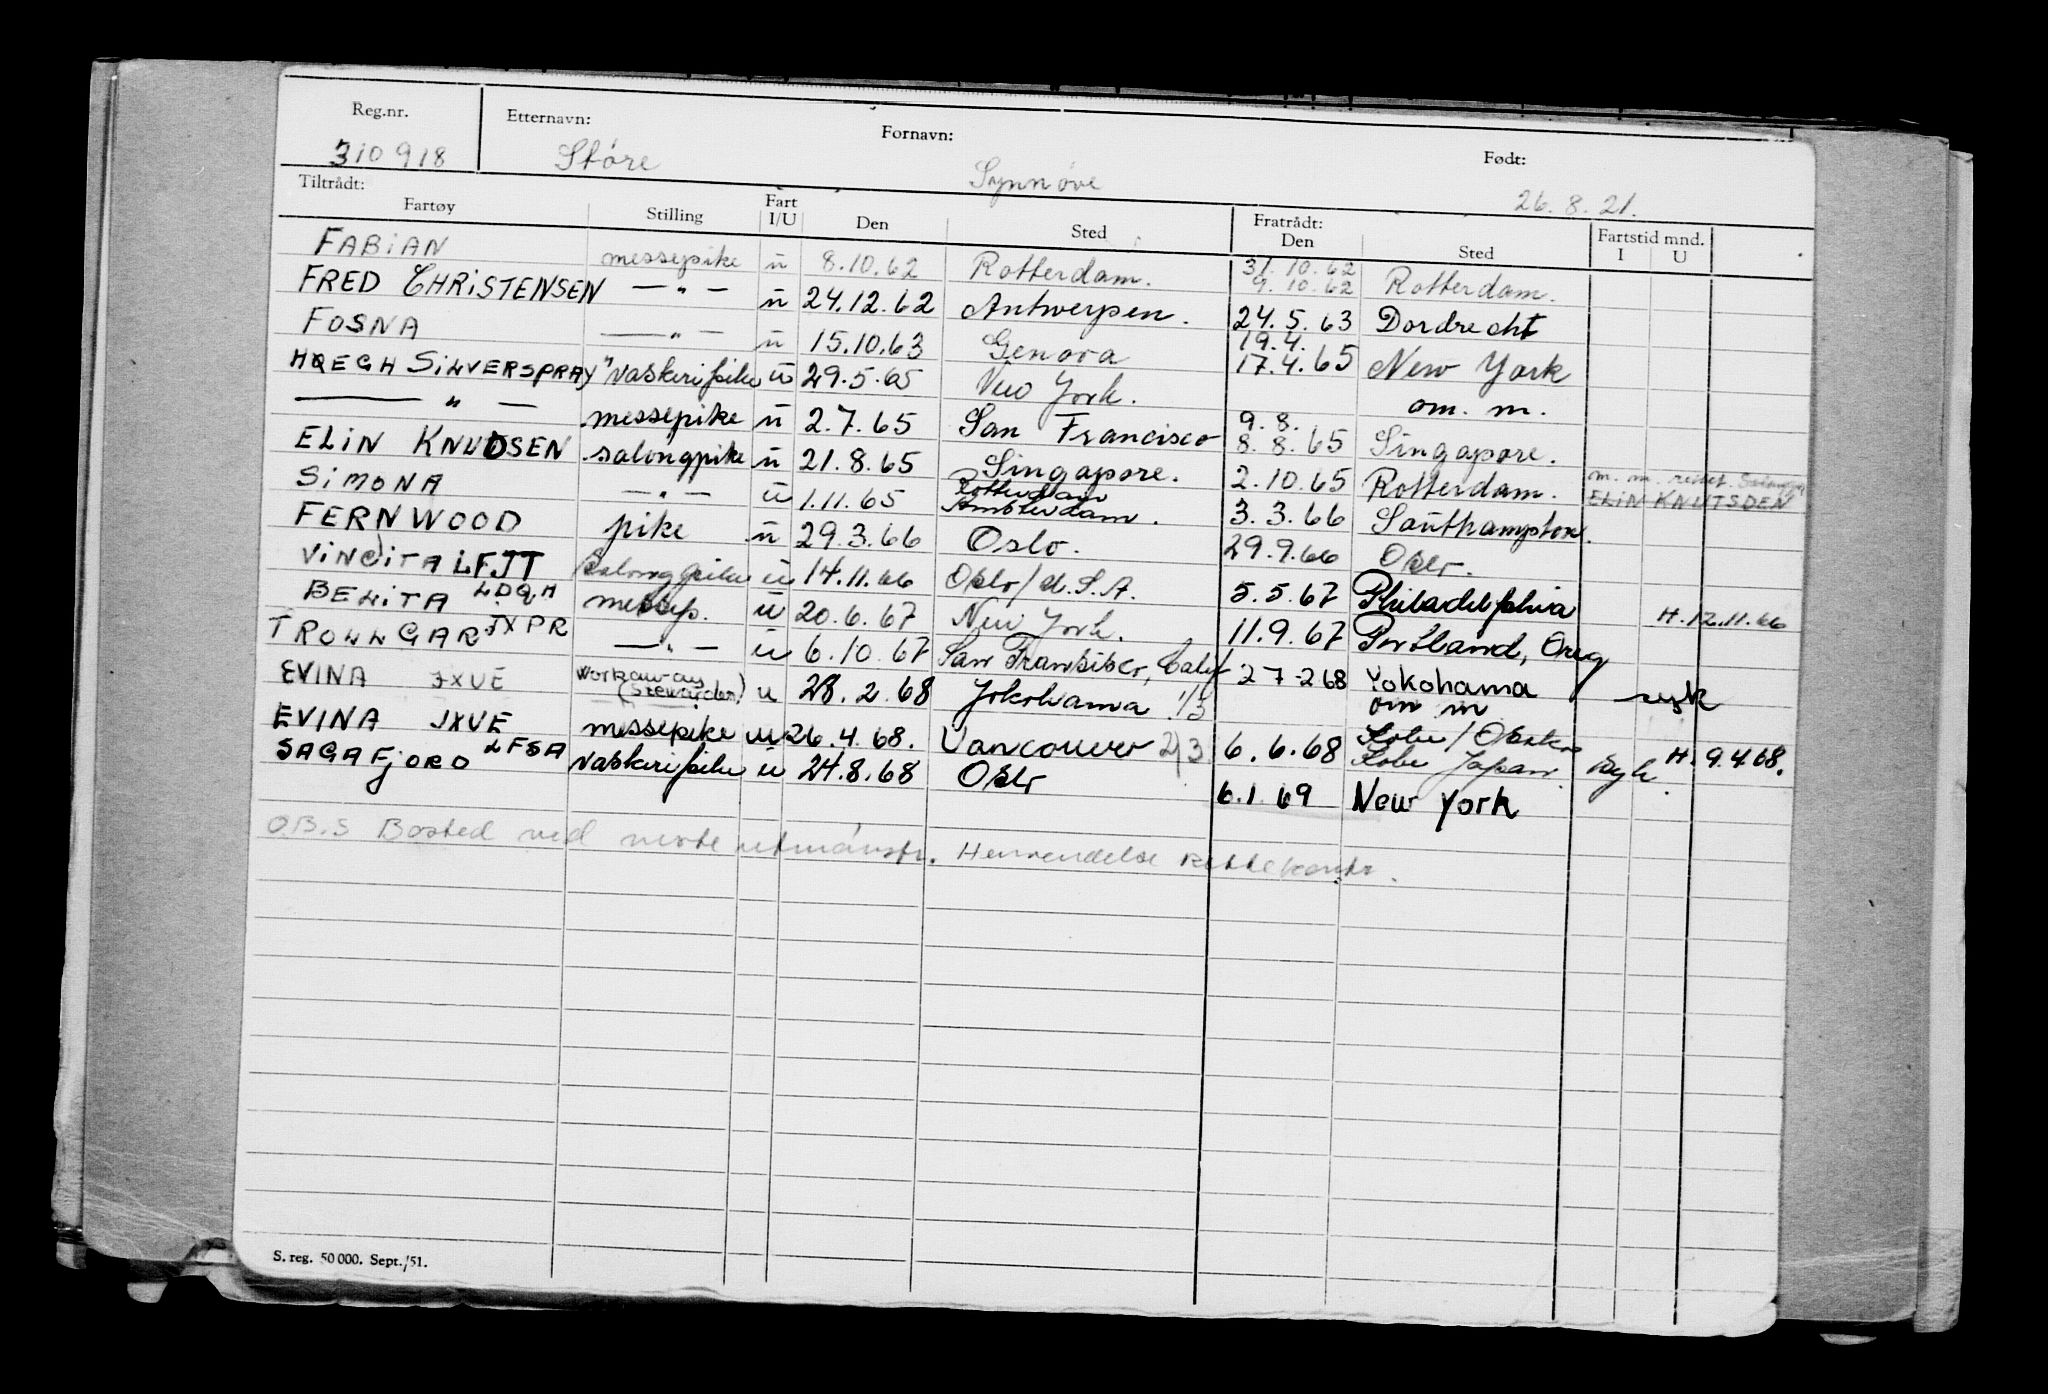 Reg.nr. Etternavn: Fornavn: Født:
310918 Støre Synnøve 26.8.21.
Tiltrådt: Fratrådt:
Fartøy Stilling Fart I/U Den Sted Den Sted Fartstid mnd. I U
FABIAN messepike u 8.10.62 Rotterdam. 31.10.62 9.10.62 Rotterdam.
FRED CHRISTENSEN — " — u 24.12.62 Antwerpen. 24.5.63 Dordrecht
FOSNA — " — u 15.10.63 Genova 19.4. 17.4.65 New York
HØEGH SILVERSPRAY vaskeripike u 29.5.65 New York. om. m.
— " — messepike u 2.7.65 San Francisco 9.8. 8.8.65 Singapore.
ELIN KNUDSEN salongpike u 21.8.65 Singapore. 2.10.65 Rotterdam. m. m. rettet ELIN KNUTSDEN
SIMONA — " — u 1.11.65 Rotterdam Amsterdam. 3.3.66 Southampton.
FERNWOOD pike u 29.3.66 Oslo. 29.9.66 Oslo.
VINCITA LFJT Salongpike u 14.11.66 Oslo/U.S.A. 5.5.67 Philadelphia H. 12.11.66
BELITA LDQH messep. u 20.6.67 New York. 11.9.67 Portland, Oreg
TROLLGAR JXPR — " — u 6.10.67 San Fransisco, Calif 27-2 68 Yokohama syk
EVINA JXUE Workaway (Stewarden) u 28.2.68 Yokohama 1/3 om m
EVINA JXUE messepike u 26.4.68. Vancouver 2/3 6.6.68 Kobe/Osaka Kobe Japan Syk. H. 9.4.68.
SAGAFJORD LFSA vaskeripike u 24.8.68 Oslo 6.1.69 New York
O.B.S Bosted ved neste utmønstr. Henvendelse
S. reg. 50 000. Sept./51.